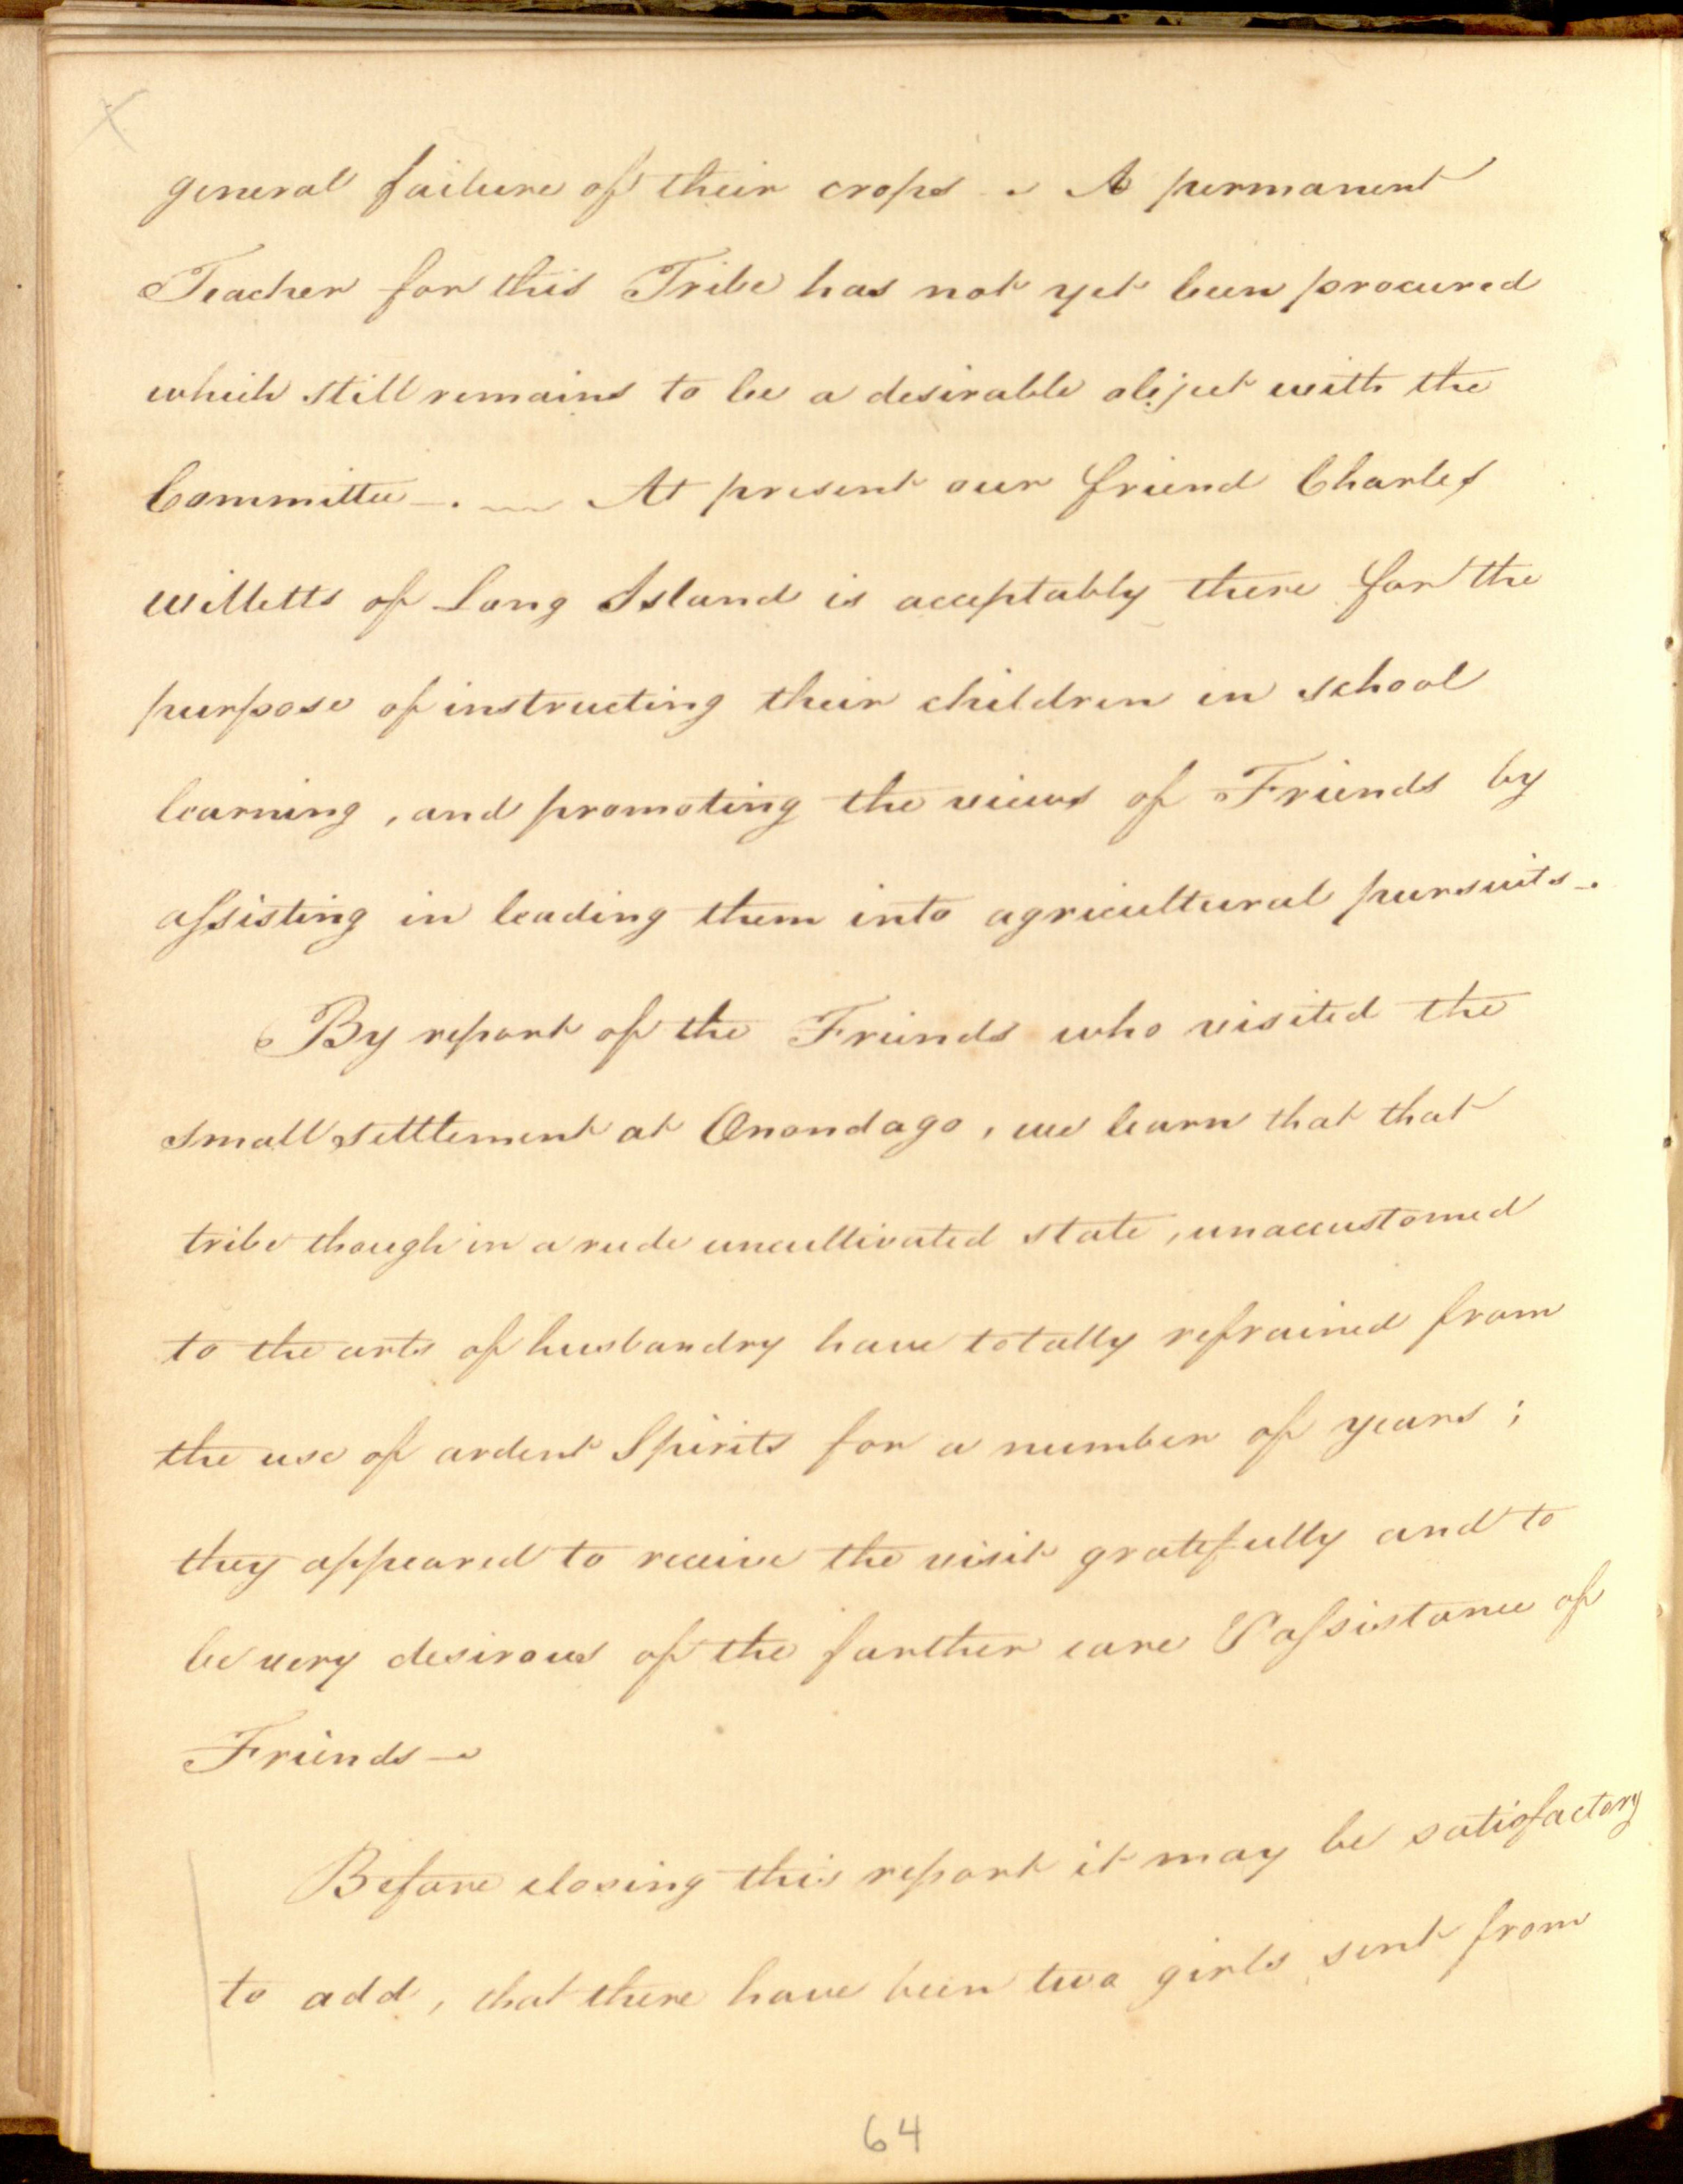 general failure of their crops - . A permanent
Teacher for this Tribe has not yet been procured
which still remains to be a desirable object with the
Committee -. — At present our friend Charles
Willetts of Long Island is acceptably there for the
purpose of instructing their children in school
learning, and promoting the views of Friends by
assisting in leading them into agricultural pursuits -.
By report of the Friends who visited the
small settlement at Onondago, we learn that that
tribe though in a rude uncultivated state, unaccustomed
to the arts of husbandry have totally refrained from
the use of ardent Spirits for a number of years;
they appeared to receive the visit gratefully and to
be very desirous of the further care & assistance of
Friends -
Before closing this report it may be satisfactory
to add, that there have been two girls sent from
64